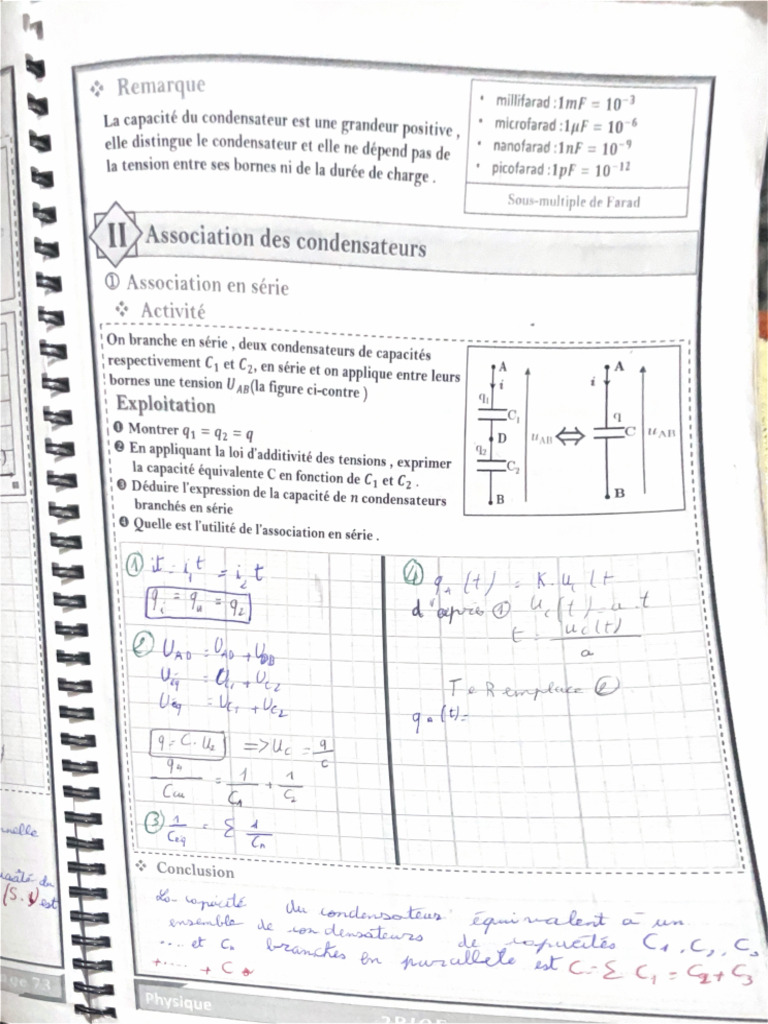 ❖ Remarque
La capacité du condensateur est une grandeur positive ,
elle distingue le condensateur et elle ne dépend pas de
la tension entre ses bornes ni de la durée de charge .
• millifarad :1mF = 10⁻³
• microfarad :1μF = 10⁻⁶
• nanofarad :1nF = 10⁻⁹
• picofarad :1pF = 10⁻¹²
Sous-multiple de Farad
II Association des condensateurs
① Association en série
❖ Activité
On branche en série , deux condensateurs de capacités
respectivement C₁ et C₂, en série et on applique entre leurs
bornes une tension U_AB(la figure ci-contre )
Exploitation
❶ Montrer q₁ = q₂ = q
❷ En appliquant la loi d'additivité des tensions , exprimer
la capacité équivalente C en fonction de C₁ et C₂ .
❸ Déduire l'expression de la capacité de n condensateurs
branchés en série
❹ Quelle est l'utilité de l'association en série .
A
i
q₁
C₁
D
q₂
C₂
B
u_AB
A
i
q
C
u_AB
B
① it = i₁t = i₂t
② U_AD = U_AD + U_DB
U_C1 + U_C2
= U_C1 + U_C2
q = C.U₂ => U_C = q/c
= 1/C₁ + 1/C₂
③ 1/Ceq = Σ 1/Cn
④ q_A (t) = K.
d'apres ①
t = uc(t)/a
Remplace ②
❖ Conclusion
La capacité du condensateur équivalent à un
ensemble de condensateurs de capacités C₁, C₂, C₃
.... et Cn branchés en parallele est C = Σ C₁ = C₂ + C₃
+ ..... + C
Physique